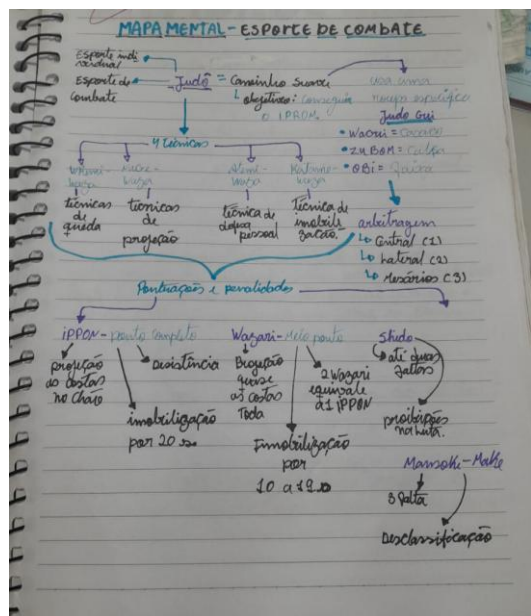 MAPA MENTAL - ESPORTE DE COMBATE
Esporte indi
vidual
Esporte de
Combate
Judô = Caminho Suave
objetivos: conseguir
O IPPON.
usa uma
roupa específica
Judo Gui
Wagui = Casaco
ZuBOM = Calça
OBi = Faixa
4 técnicas
Nage-
waza
Atemi
waza
Katame-
waza
técnicas
de
queda
técnicas
de
projeção
técnica de
defesa
pessoal
técnica de
imobili
zação
arbitragem
Central (1)
Lateral (2)
Mesários (3)
Pontuações e penalidades
iPPON - ponto completo
projeção
as costas
no chão
desistência
imobilização
por 20 s
Wazari - Meio ponto
Projeção
quase
as costas
Toda
2 Wazari
equivale
a 1 iPPON
Imobilização
por
10 a 19 s
Shido
até duas
faltas
proibições
na luta.
Mansoke - Make
3 falta
Desclassificação